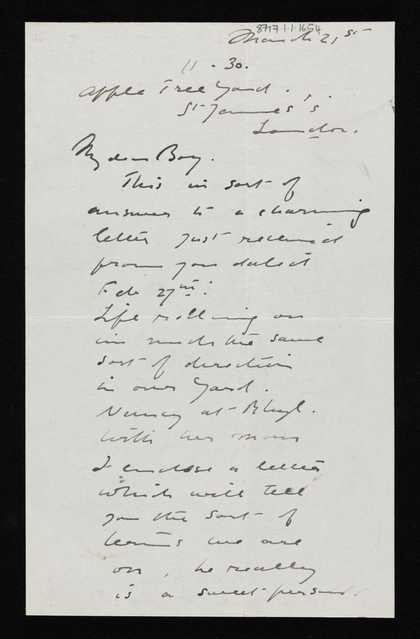 8717.1.1.1654
March 21st
11.30.
Apple Tree Yard.
St James's
London.
My dear Boy.
This in sort of
answer to a charming
letter just received
from you dated
Feb 27th:
Life rolling on
in much the same
sort of direction
in our Yard.
Nancy at Rhyl.
With her mam
I enclose a letter
which will tell
you the sort of
terms we are
on, he really
is a sweet person.